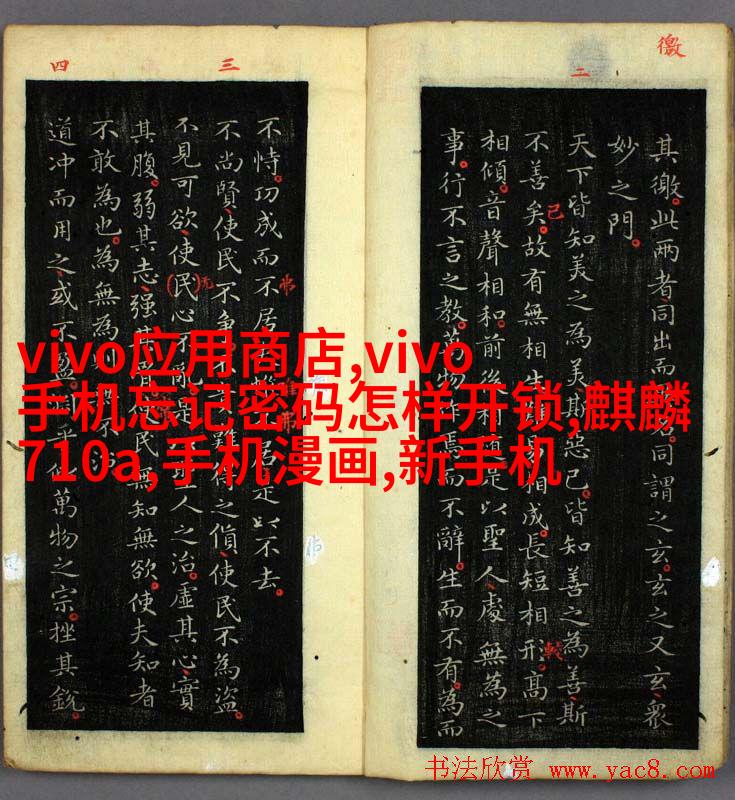 徼
二
其徼。此兩者、同出而名。同謂之玄。玄之又玄、衆
妙之門。
天下皆知美之為美斯惡已。皆知善之為善斯
不善矣。故有無相生難易相成。長短相形。髙下
相傾。音聲相和。前後相是以聖人處無為之
事。行不言之教。萬物作焉而不辭。生而不有。為而
三
四
不恃。功成而不居。居是以不去。
不尚賢、使民不爭難得之貨、使民不為盜。
不見可欲、使民心不亂是人之治。虛其心、實
其腹。弱其志、强其骨使民無知無欲。使夫知者
不敢為也。為無為則不
道冲而用之、或不盈。乎似萬物之宗。挫其銳。
vivo应用商店,vivo
手机忘记密码怎样开锁,麒麟
710a,手机漫画,新手机
书法欣赏 www.yac8.com